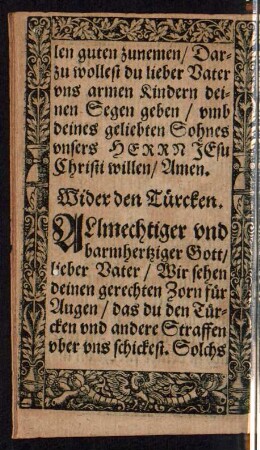 len guten zunemen/ Dar-
zu wollest du lieber Vater
vns armen Kindern dei-
nen Segen geben/ vmb
deines geliebten Sohnes
vnsers HERRN JEsu
Christi willen/ Amen.
Wider den Türcken.
ALlmechtiger vnd
barmhertziger Gott/
lieber Vater/ Wir sehen
deinen gerechten Zorn für
Augen/ das du den Tür-
cken vnd andere Straffen
vber vns schickest. Solchs